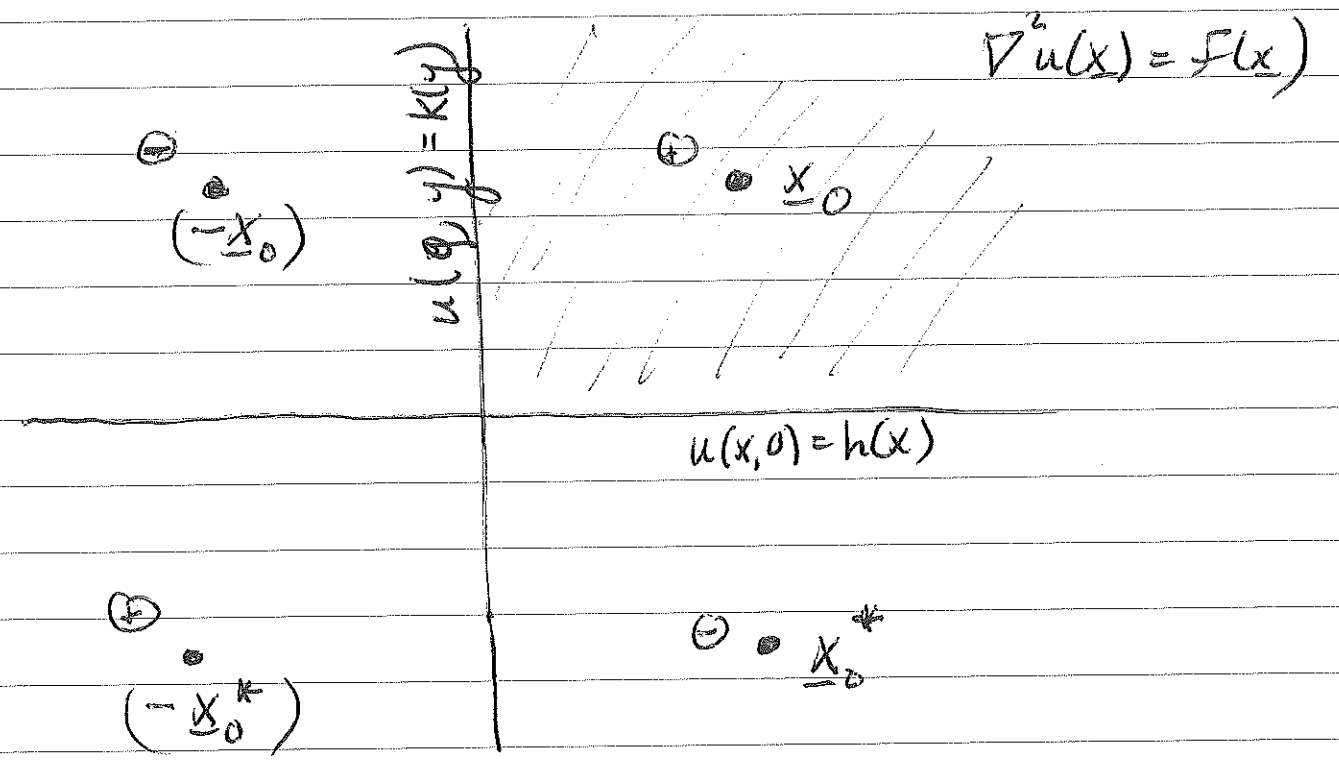 ∇²u(x̲) = f(x̲)
u(0, y) = k(y)
⊖
(-x̲₀)
⊕
x̲₀
u(x,0) = h(x)
⊕
(-x̲₀*)
⊖
x̲₀*